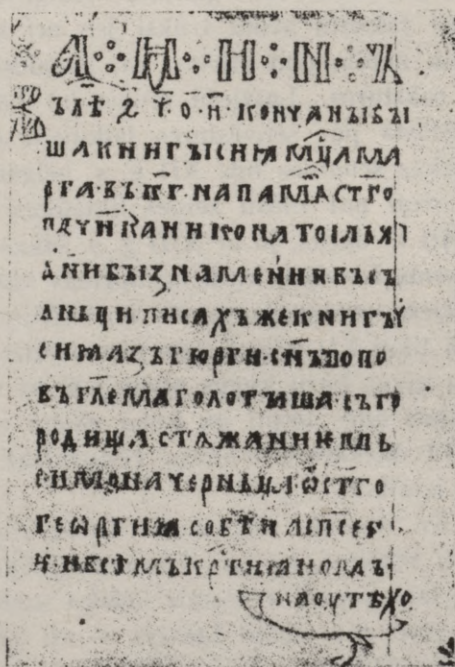 А҃·М·И·Н·Ъ
ъ лѣ ҂ѕ҃ ѱ҃·о҃·и҃·кончаны бы
ша книгы сиꙗ мц҃а ма
рта·въ к҃г·на памѧ ст҃го
и кан никона тог лѣ
дни бы знамение въ съ
лньци·писахъ же книгы
сиꙗ азъ гюрги·сн҃ъ попо
въ гл҃емаго лотыша·съ го
родища·стѧжаниемь
симона черньца ѿ ст҃го
геѡргиꙗ·собѣ и
и·и всѣмъ крт҃иꙗномъ·
на оутѣхо